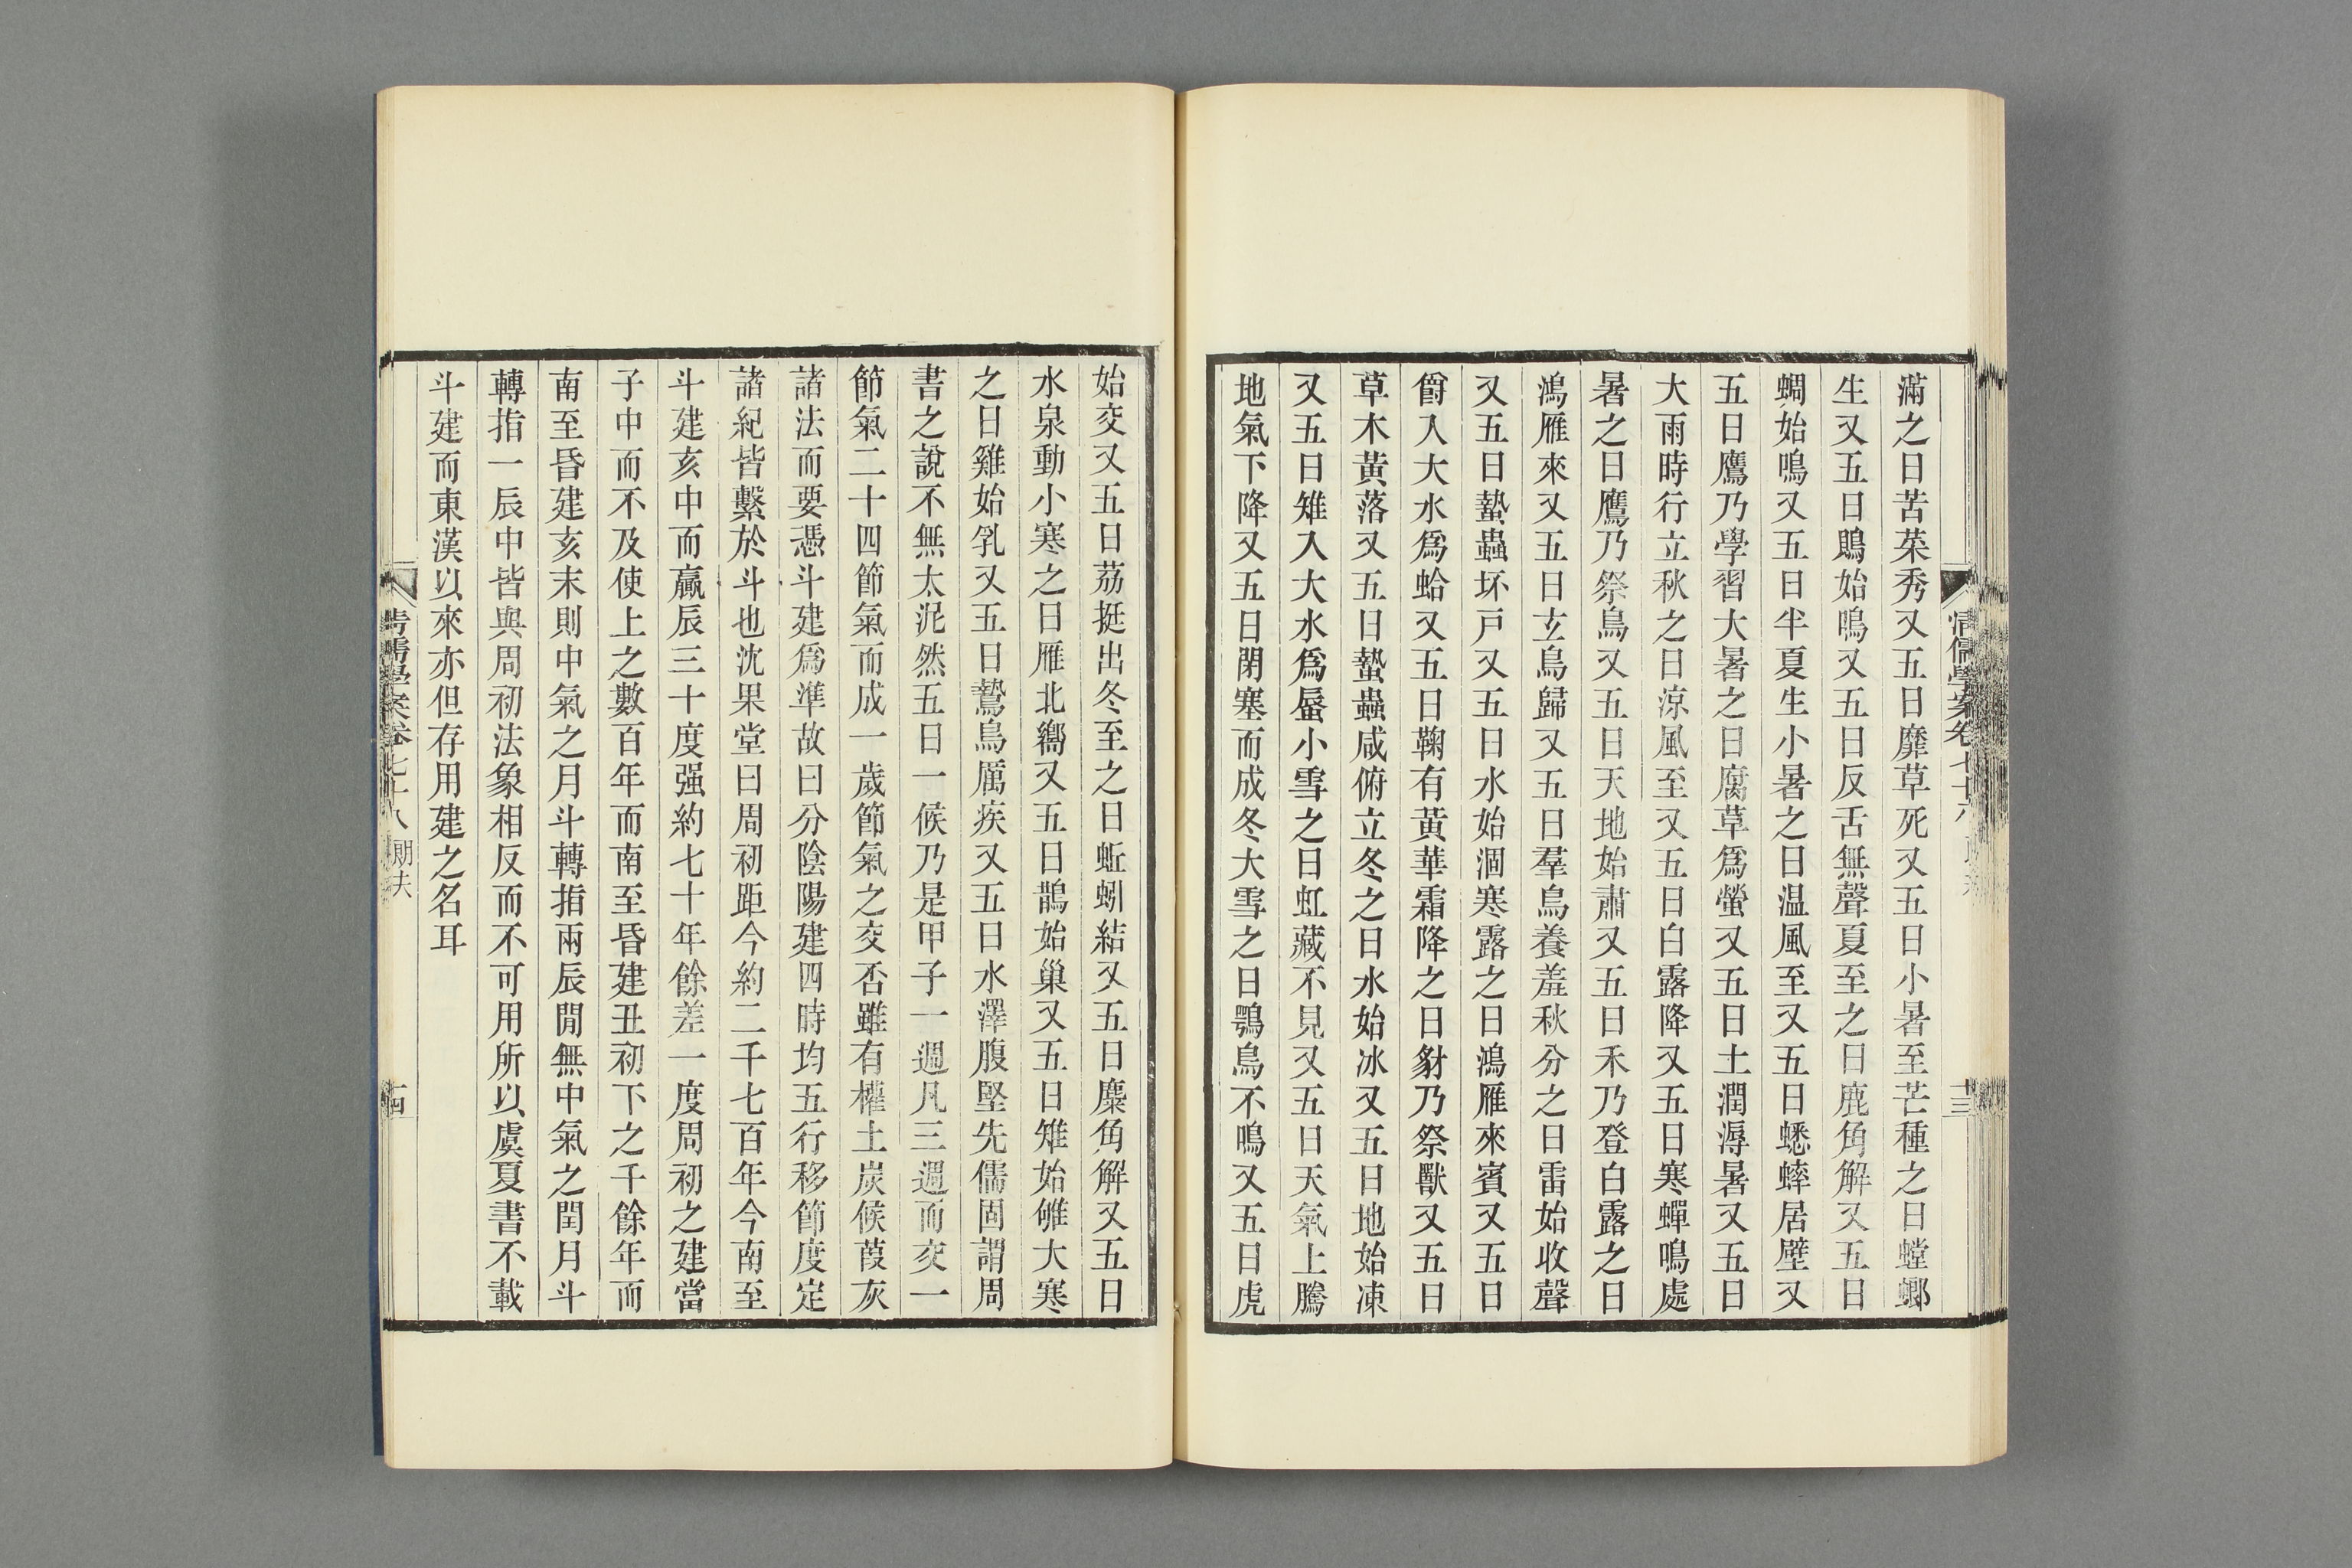 滿之日苦菜秀又五日靡草死又五日小暑至芒種之日螳螂
生又五日鵙始鳴又五日反舌無聲夏至之日鹿角解又五日
蜩始鳴又五日半夏生小暑之日温風至又五日蟋蟀居壁又
五日鷹乃學習大暑之日腐草爲螢又五日土潤溽暑又五日
大雨時行立秋之日涼風至又五日白露降又五日寒蟬鳴處
暑之日鷹乃祭鳥又五日天地始肅又五日禾乃登白露之日
鴻雁來又五日玄鳥歸又五日羣鳥養羞秋分之日雷始收聲
又五日蟄蟲坏戸又五日水始涸寒露之日鴻雁來賓又五日
爵入大水爲蛤又五日鞠有黃華霜降之日豺乃祭獸又五日
草木黃落又五日蟄蟲咸俯立冬之日水始冰又五日地始凍
又五日雉入大水爲蜃小雪之日虹藏不見又五日天氣上騰
地氣下降又五日閉塞而成冬大雪之日鶚鳥不鳴又五日虎
始交又五日荔挺出冬至之日蚯蚓結又五日麋角解又五日
水泉動小寒之日雁北嚮又五日鵲始巢又五日雉始雊大寒
之日雞始乳又五日鷙鳥厲疾又五日水澤腹堅先儒固謂周
書之說不無太泥然五日一候乃是甲子一週凡三週而交一
節氣二十四節氣而成一歲節氣之交否雖有權土炭候葭灰
諸法而要憑斗建爲準故曰分陰陽建四時均五行移節度定
諸紀皆繫於斗也沈果堂曰周初距今約二千七百年今南至
斗建亥中而贏辰三十度强約七十年餘差一度周初之建當
子中而不及使上之數百年而南至昏建丑初下之千餘年而
南至昏建亥末則中氣之月斗轉指兩辰閒無中氣之閏月斗
轉指一辰中皆與周初法象相反而不可用所以虞夏書不載
斗建而東漢以來亦但存用建之名耳
清儒學案卷七十八
十三
十四